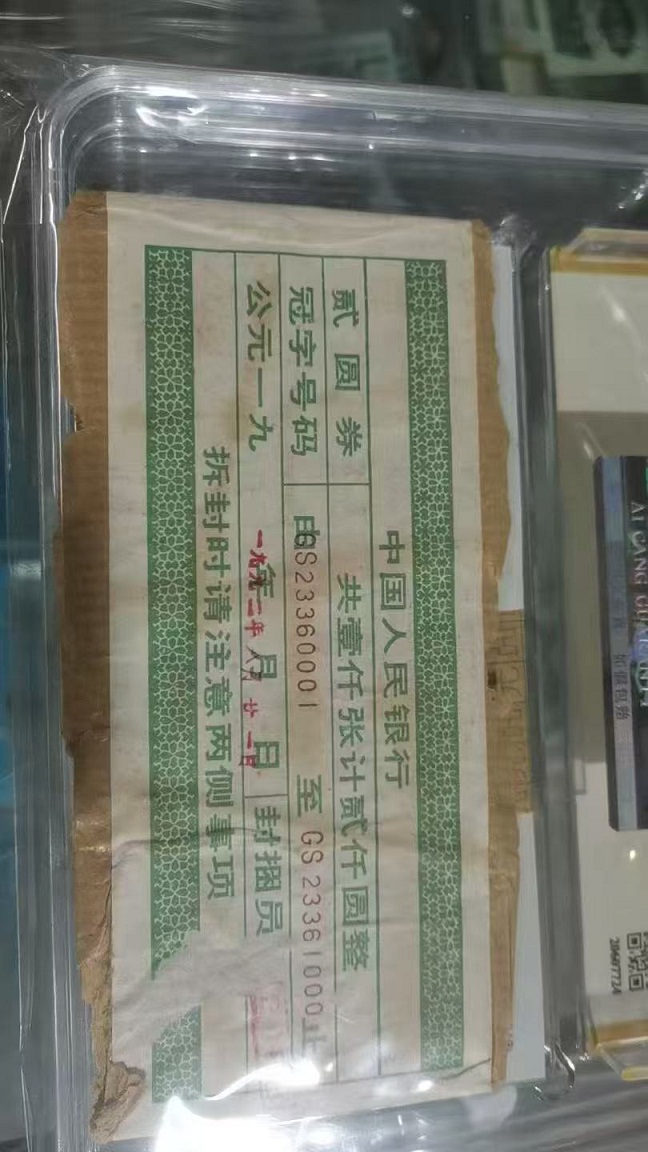 中国人民银行
贰圆券 共壹仟张计贰仟圆整
冠字号码 由GS23360001 至GS23361000止
公元一九 年 月 日 封捆员
一九九二年八月廿一日
拆封时请注意两侧事项
AI CANG
如假包赔